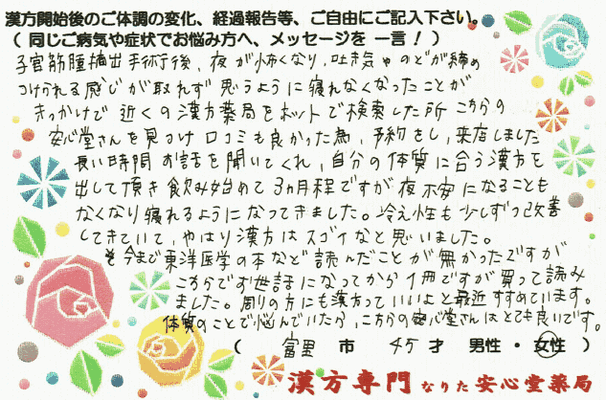 漢方開始後のご体調の変化、経過報告等、ご自由にご記入下さい。
(同じご病気や症状でお悩み方へ、メッセージを 一言!)
子宮筋腫摘出手術後、夜が怖くなり、吐き気やのどが締め
つけられる感じが取れず 思うように寝れなくなったことが
きっかけで 近くの漢方薬局をネットで検索した所 こちらの
安心堂さんを見つけ 口コミも良かった為、予約をし、来店しました
長い時間お話を聞いてくれ、自分の体質に合う漢方を
出して頂き飲み始めて3カ月程ですが夜不安になることも
なくなり寝れるようになってきました。冷え性も少しずつ改善
してきていて、やはり漢方はスゴイなと思いました。
今まで東洋医学の本など読んだことが無かったですが
こちらでお世話になってから1冊ですが買って読み
ました。周りの方にも漢方っていいよと最近すすめています。
体質のことで悩んでいたら、こちらの安心堂さんはとても良いです。
( 富里 市 45 才 男性・女性 )
漢方専門 なりた 安心堂薬局